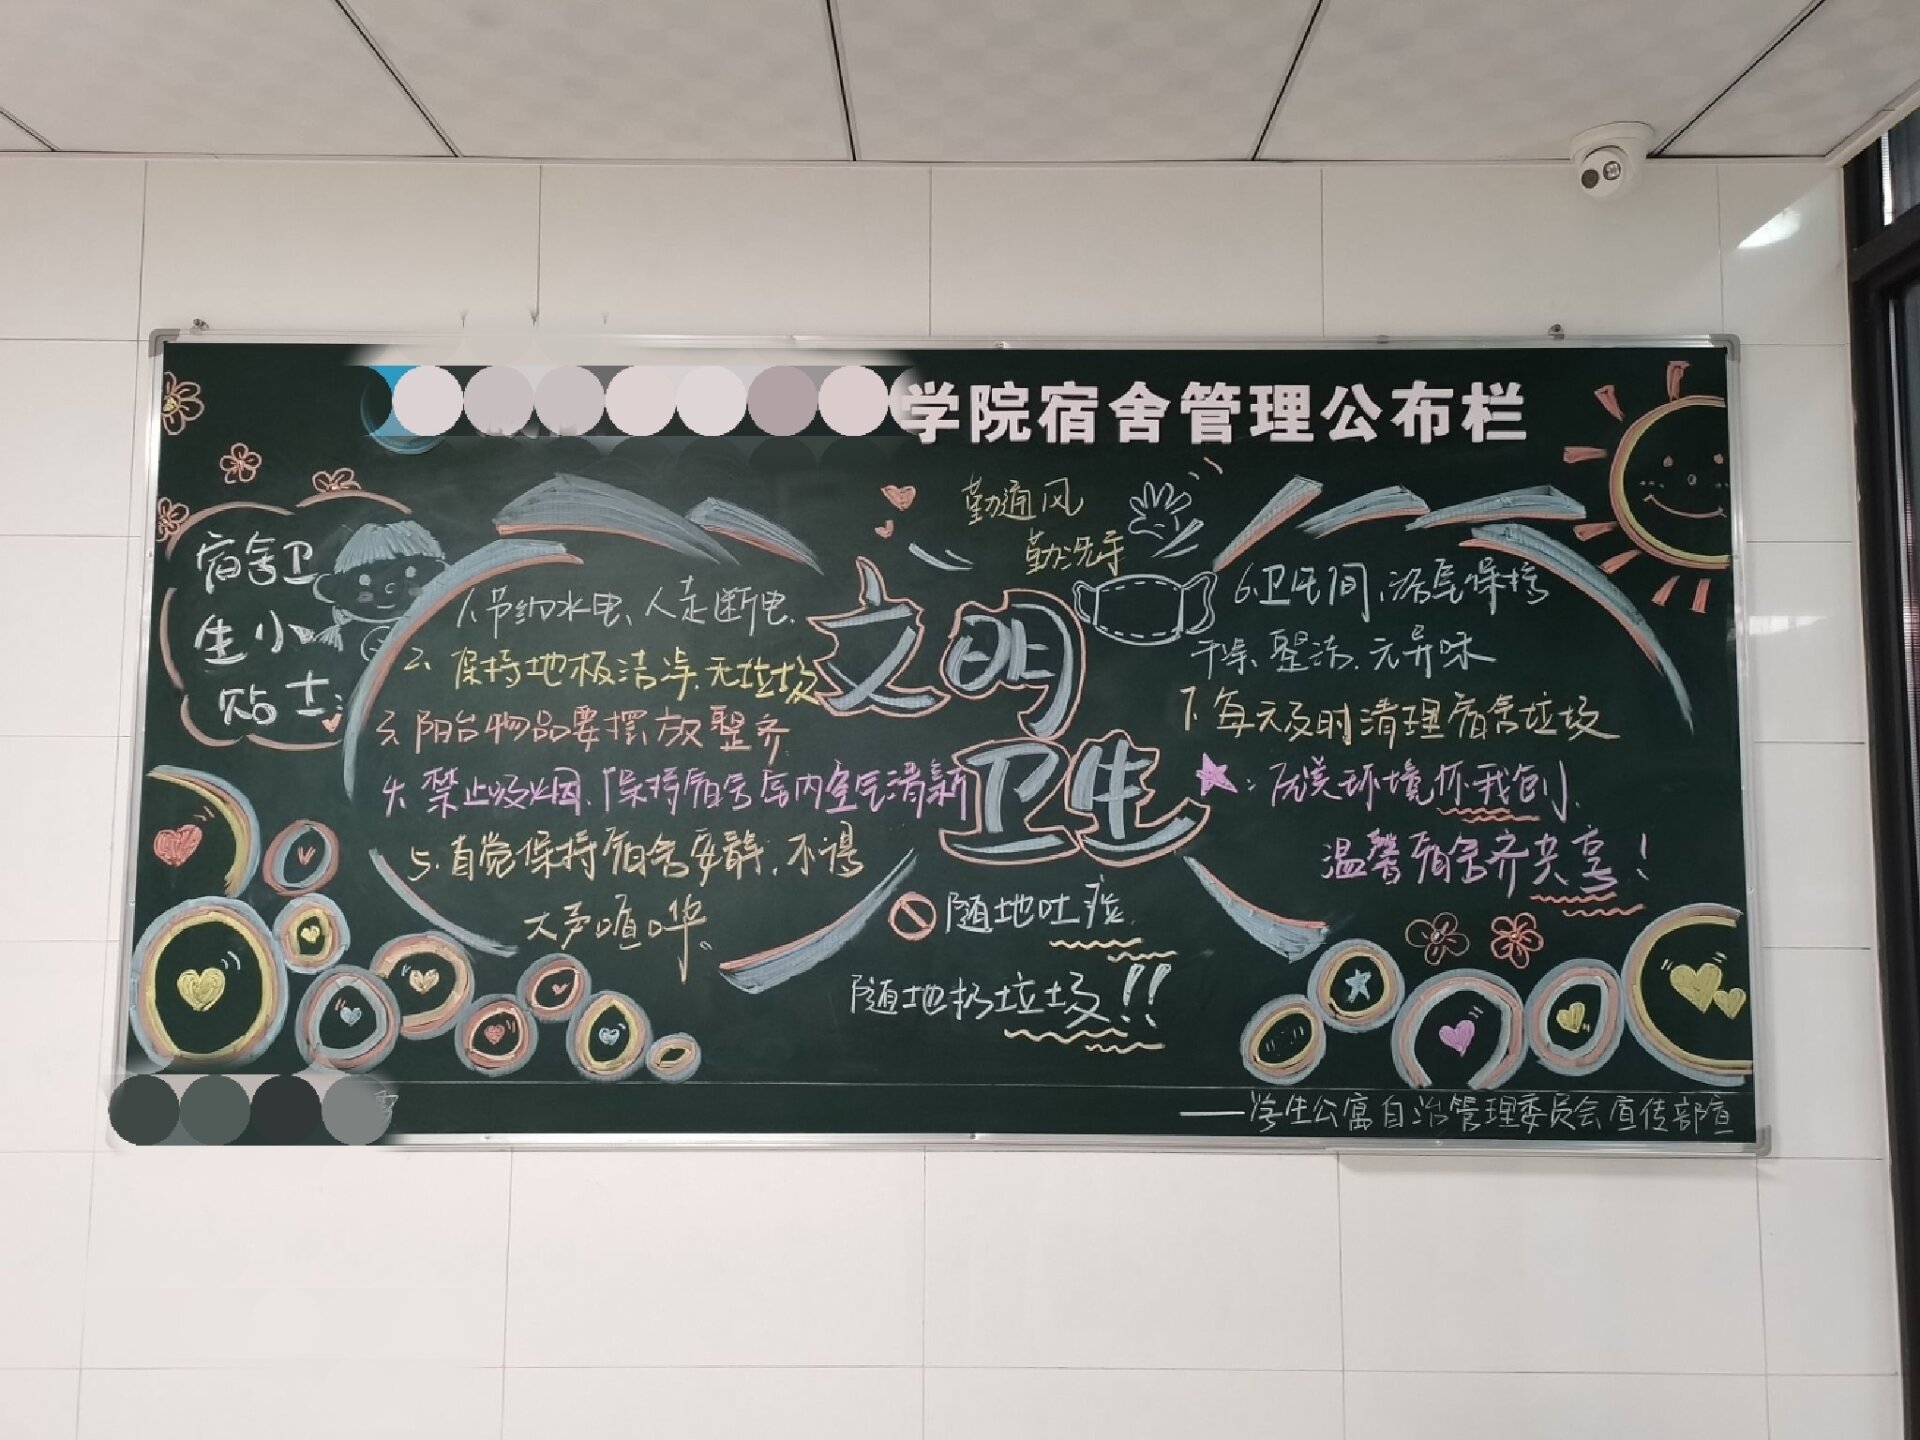 学院宿舍管理公布栏
勤通风
勤洗手
宿舍卫
生小
贴士:
文明
卫生
1.节约水电、人走断电.
2、保持地板洁净、无垃圾
3.阳台物品要摆放整齐
4、禁止吸烟、保持宿舍房内空气清新
5.自觉保持宿舍安静.不得
大声喧哗。
6.卫生间,浴室保持
干净、整洁、无异味
7.每天及时清理宿舍垃圾
优美环境你我创,
温馨宿舍齐共享!
随地吐痰
随地扔垃圾!!
——学生公寓自治管理委员会宣传部宣